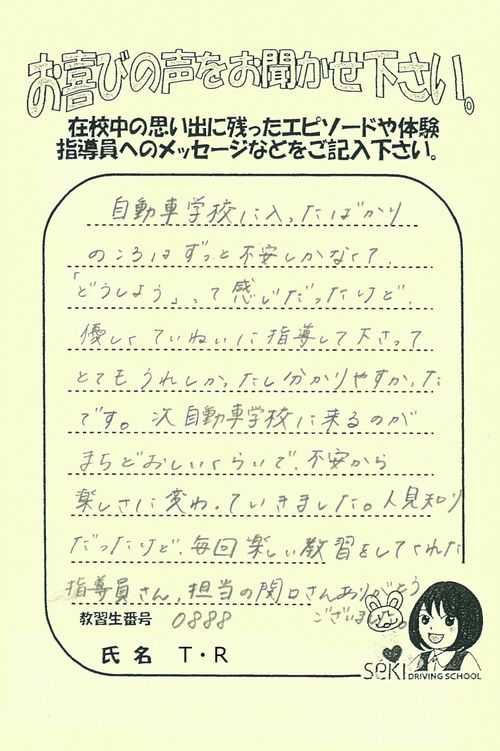 お喜びの声をお聞かせ下さい。
在校中の思い出に残ったエピソードや体験
指導員へのメッセージなどをご記入下さい。
自動車学校に入ったばかり
のころはずっと不安しかなくて、
「どうしよう」って感じだったけど、
優しくていねいに指導して下さって
とてもうれしかったし分かりやすかった
です。次自動車学校に来るのが
まちどおしいくらいで、不安から
楽しさに変わっていきました。人見知り
だったけど、毎回楽しい教習をしてくれた
指導員さん、担当の関口さんありがとう
ございました。
教習生番号 0888
氏名 T・R
SEKI DRIVING SCHOOL